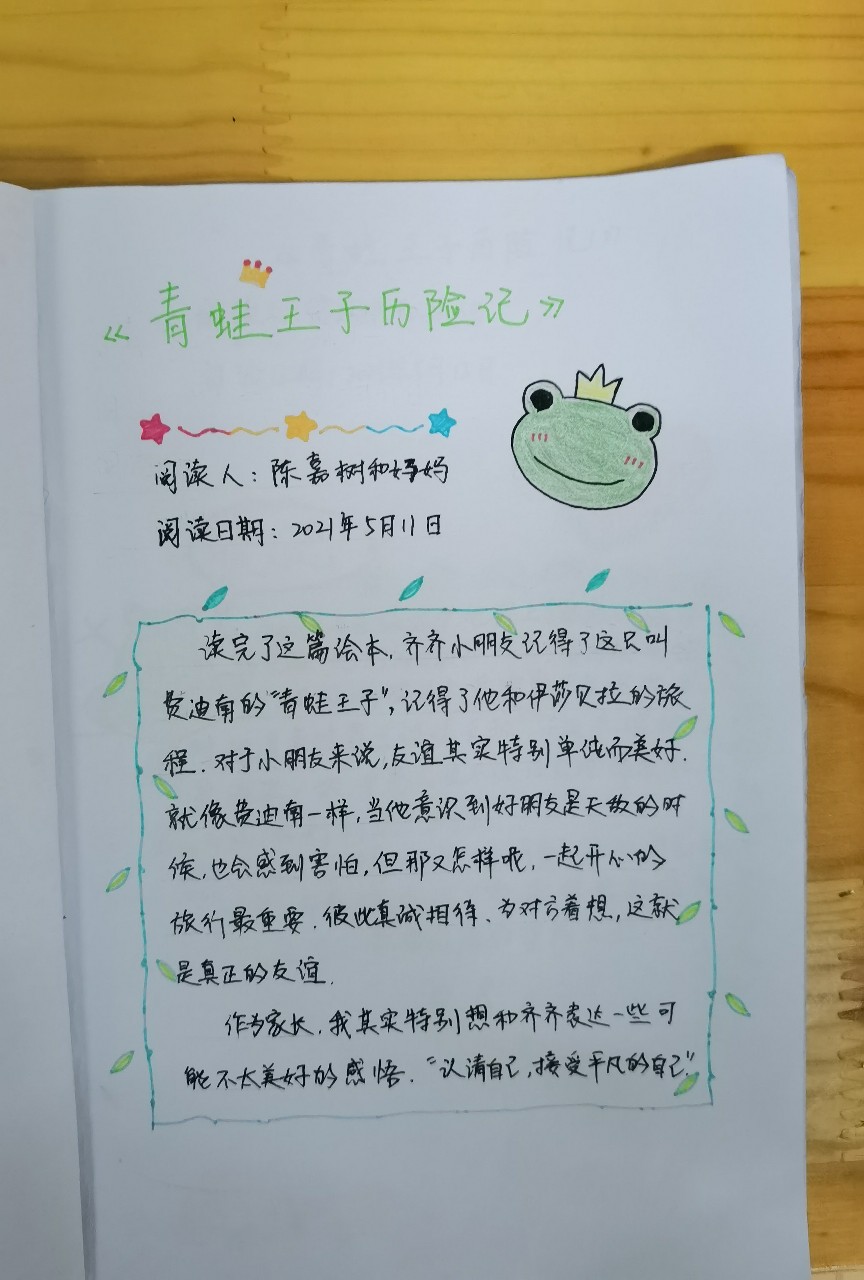 《青蛙王子历险记》
阅读人：陈嘉树和妈妈
阅读日期：2021年5月11日
读完了这篇绘本，齐齐小朋友记得了这只叫
费迪南的“青蛙王子”，记得了他和伊莎贝拉的旅
程．对于小朋友来说，友谊其实特别单纯而美好．
就像费迪南一样，当他意识到好朋友是天敌的时
候，也会感到害怕，但那又怎样呢，一起开心的
旅行最重要．彼此真诚相待、为对方着想，这就
是真正的友谊．
作为家长，我其实特别想和齐齐表达一些可
能不太美好的感悟．“认清自己，接受平凡的自己”．